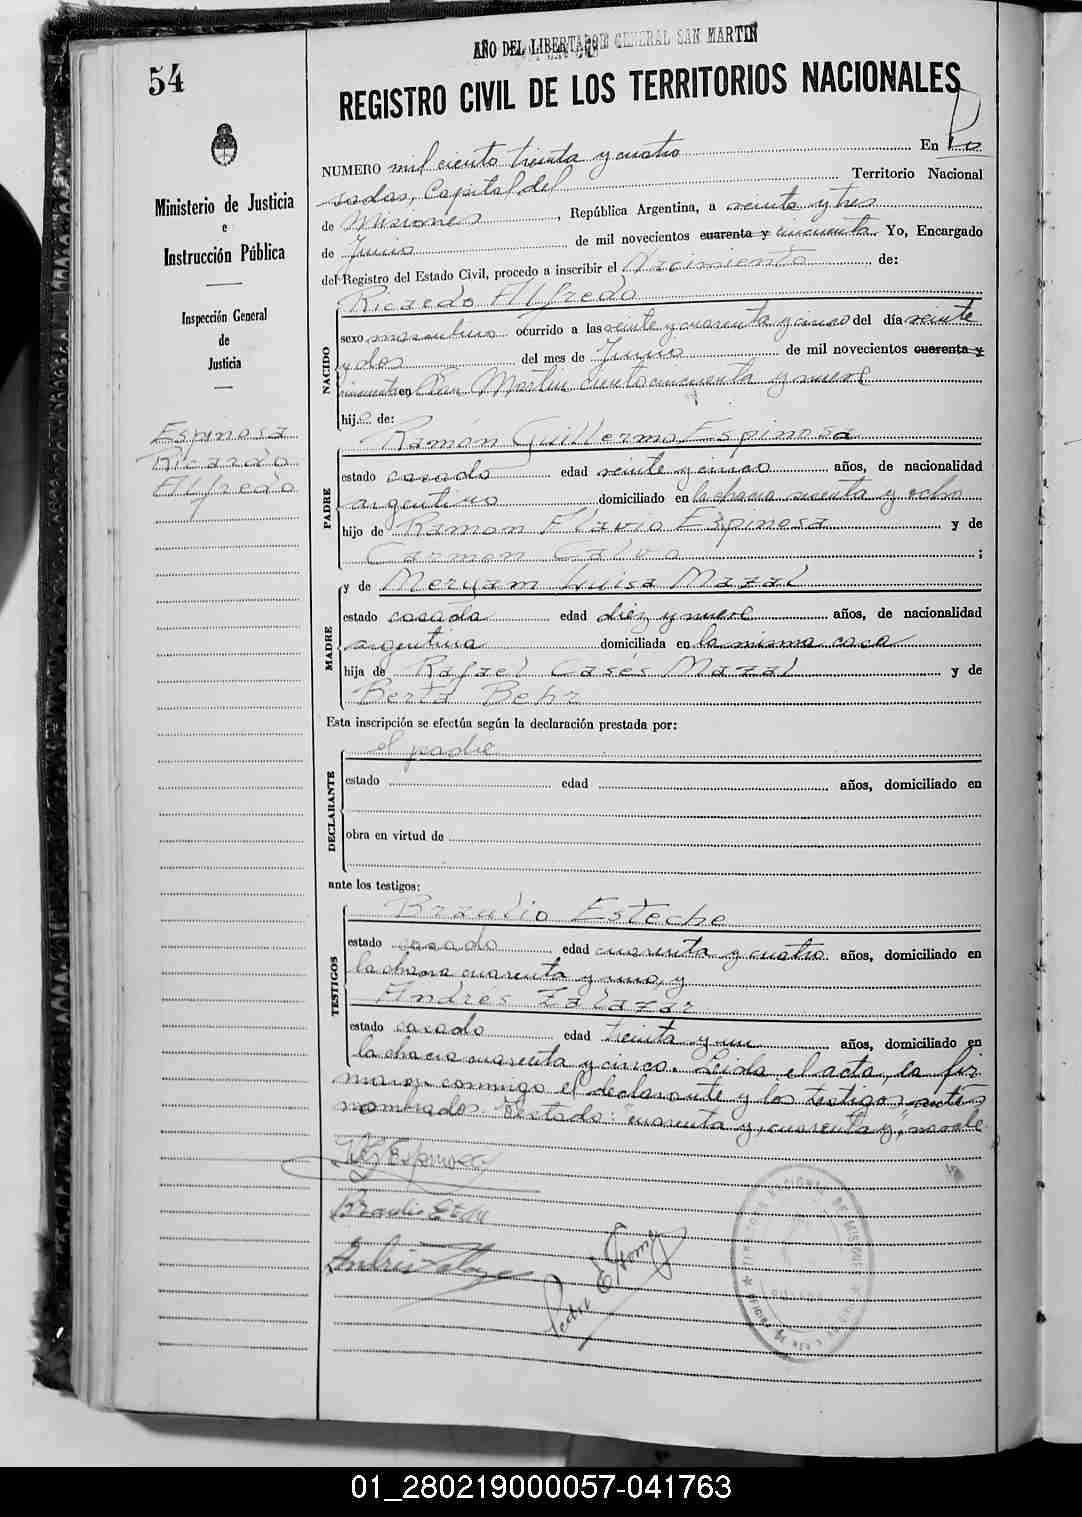 AÑO DEL LIBERTADOR GENERAL SAN MARTIN
54
REGISTRO CIVIL DE LOS TERRITORIOS NACIONALES
NUMERO mil ciento treinta y cuatro En Po
sadas, Capital del Territorio Nacional
de Misiones, República Argentina, a veinte y tres
de Junio de mil novecientos cuarenta y cincuenta. Yo, Encargado
del Registro del Estado Civil, procedo a inscribir el Nacimiento de:
Ministerio de Justicia
e
Instrucción Pública
Inspección General
de
Justicia
Espinosa
Ricardo
Alfredo
NACIDO
Ricardo Alfredo
sexo masculino ocurrido a las veinte y cuarenta y cinco del día veinte
y dos del mes de Junio de mil novecientos cuarenta y
cincuenta en San Martin ciento cincuenta y nueve
hijo de:
PADRE
Ramón Guillermo Espinosa
estado casado edad veinte y cinco años, de nacionalidad
argentino domiciliado en la chacra sesenta y ocho
hijo de Ramon Flavio Espinosa y de
Carmen Calvo ;
MADRE
y de Meryam Luisa Mazal
estado casada edad diez y nueve años, de nacionalidad
argentina domiciliada en la misma casa
hija de Rafael Casés Mazal y de
Berta Behr
Esta inscripción se efectúa según la declaración prestada por:
DECLARANTE
el padre
estado edad años, domiciliado en
obra en virtud de
ante los testigos:
TESTIGOS
Braulio Esteche
estado casado edad cuarenta y cuatro años, domiciliado en
la chacra cuarenta y uno, y
Andrés Zalazar
estado casado edad treinta y un años, domiciliado en
la chacra cuarenta y cinco. Leida el acta, la fir
maron conmigo el declarante y los testigos antes
nombrados. Testado: "cuarenta y, cuarenta y", no vale
RG Espinosa
Braulio Este
Andrés Zalazar
Pedro E. Gomez
TERRITORIO NACIONAL DE MISIONES
POSADAS
01_280219000057-041763